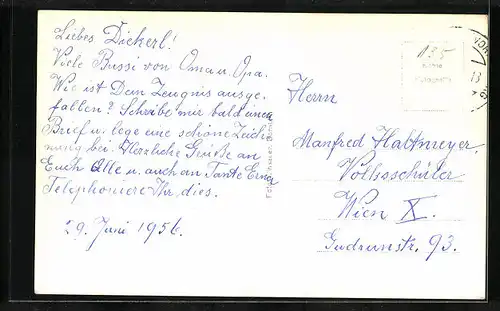 Liebes Dickerl!
Viele Bussi von Oma u. Opa.
Wie ist Dein Zeugnis ausge-
fallen? Schreibe mir bald einen
Brief u. lege eine schöne Zeich-
nung bei. Herzliche Grüße an
Euch Alle u. auch an Tante Erna
Telephoniere Ihr dies.
29. Juni 1956.
135
Herrn
Manfred Habtmeyer.
Volksschüler
Wien X.
Gudrunstr. 93.